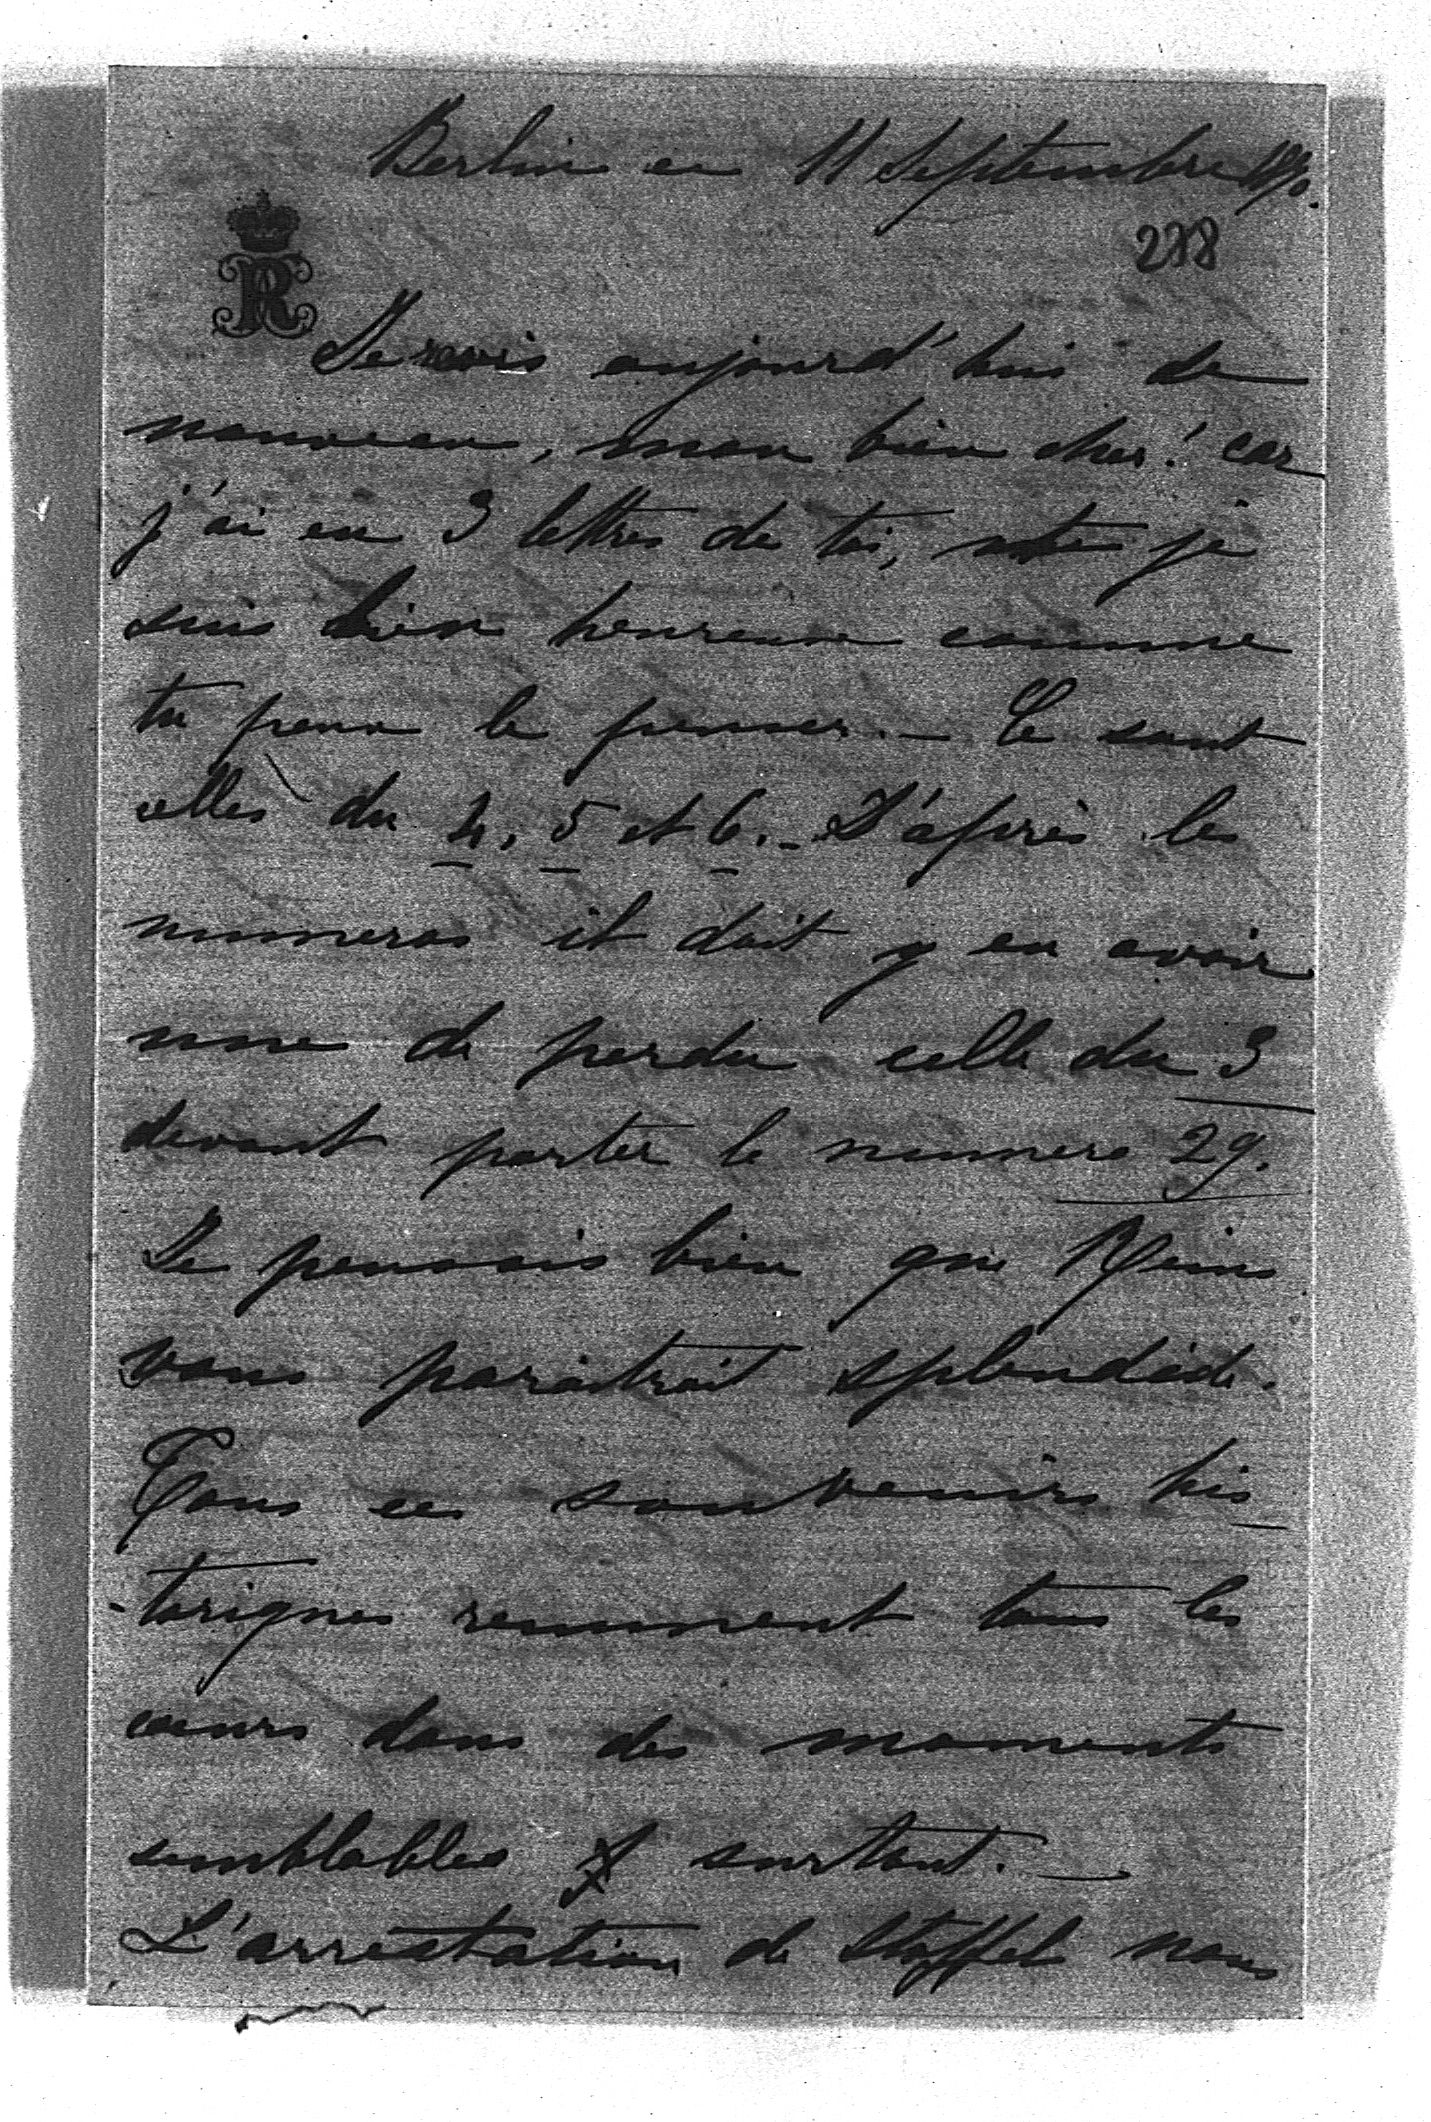 Berlin ce 11 Septembre 1870.
288
R
Je revis aujourd'hui de
nouveau, mon bien cher! car
j'ai eu 3 lettres de toi, et je
suis bien heureuse comme
tu peux le penser. — Ce sont
celles du 4, 5 et 6. — D'après les
numeros il doit y en avoir
une de perdu celle du 3
devant porter le numero 29.
Je pensais bien que Reims
vous paraitrait splendide.
Tous ces souvenirs his
-toriques remuent tous les
cœurs dans des moments
semblables surtout. —
L'arrestation de Stoffel nous